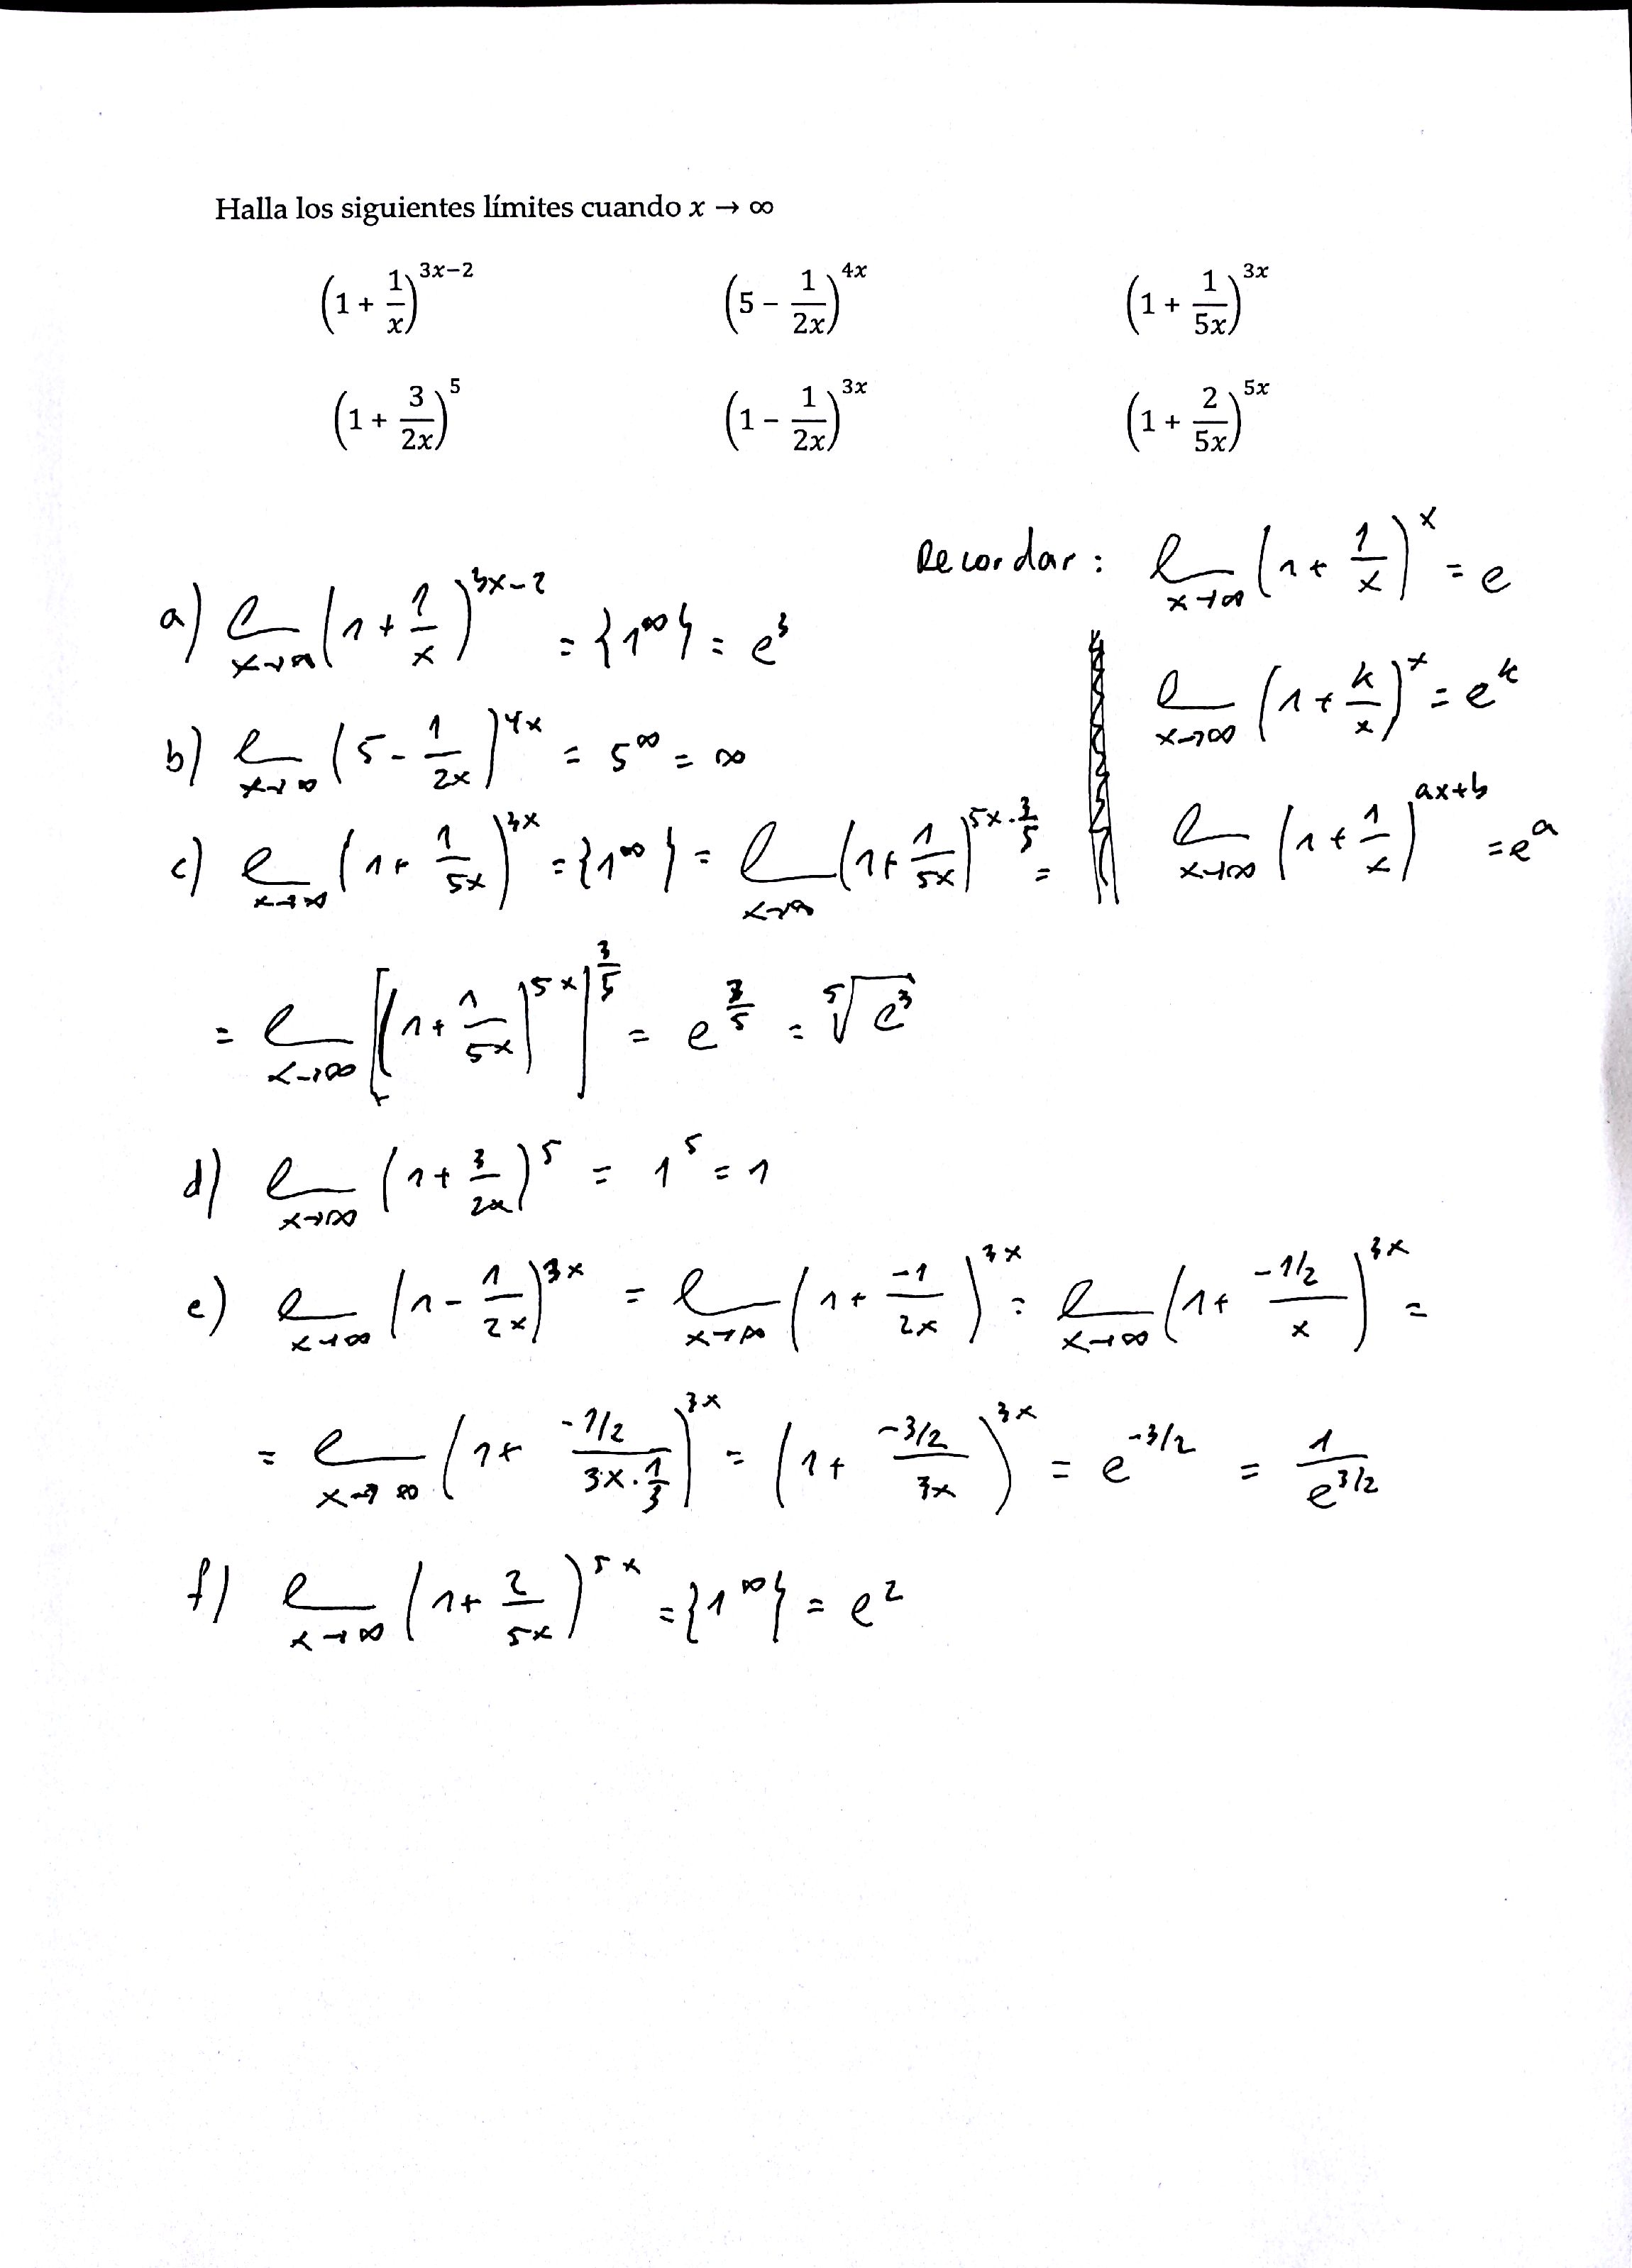 Halla los siguientes límites cuando x → ∞
(1 + 1/x)^(3x−2)   (5 − 1/(2x))^(4x)   (1 + 1/(5x))^(3x)
(1 + 3/(2x))^5   (1 − 1/(2x))^(3x)   (1 + 2/(5x))^(5x)
Recordar: l_(x→∞) (1 + 1/x)^x = e
l_(x→∞) (1 + k/x)^x = e^k
l_(x→∞) (1 + 1/x)^(ax+b) = e^a
a) l_(x→∞) (1 + 1/x)^(3x−2) = {1^∞} = e^3
b) l_(x→∞) (5 − 1/(2x))^(4x) = 5^∞ = ∞
c) l_(x→∞) (1 + 1/(5x))^(3x) = {1^∞} = l_(x→∞) (1 + 1/(5x))^(5x·3/5) =
= l_(x→∞) [(1 + 1/(5x))^(5x)]^(3/5) = e^(3/5) = ⁵√(e^3)
d) l_(x→∞) (1 + 3/(2x))^5 = 1^5 = 1
e) l_(x→∞) (1 − 1/(2x))^(3x) = l_(x→∞) (1 + −1/(2x))^(3x) = l_(x→∞) (1 + (−1/2)/x)^(3x) =
= l_(x→∞) (1 + (−1/2)/(3x·1/3))^(3x) = (1 + (−3/2)/(3x))^(3x) = e^(−3/2) = 1/e^(3/2)
f) l_(x→∞) (1 + 2/(5x))^(5x) = {1^∞} = e^2